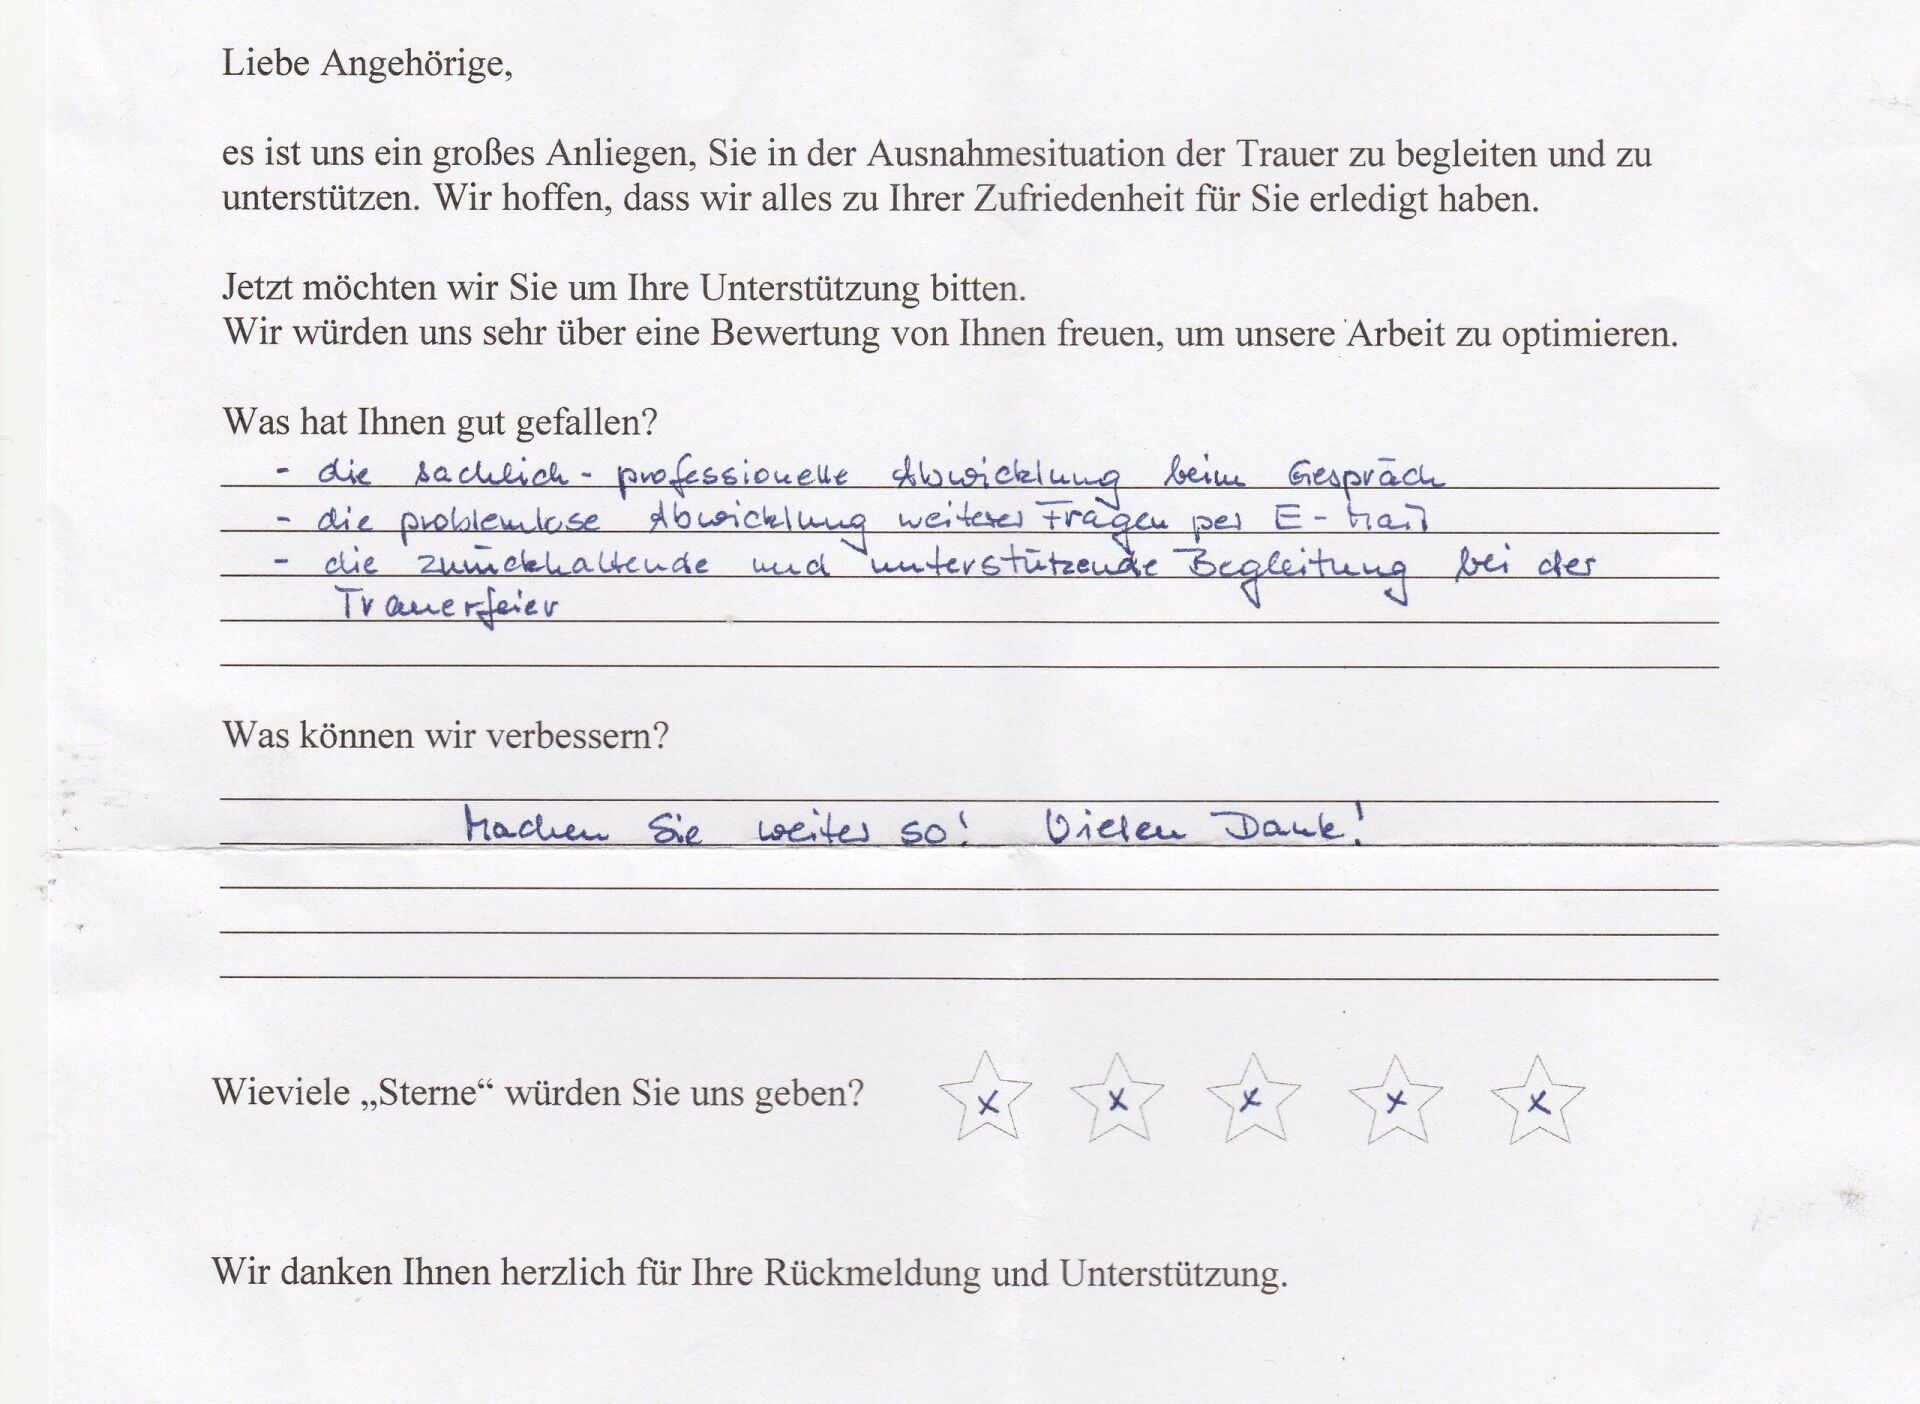 Liebe Angehörige,
es ist uns ein großes Anliegen, Sie in der Ausnahmesituation der Trauer zu begleiten und zu
unterstützen. Wir hoffen, dass wir alles zu Ihrer Zufriedenheit für Sie erledigt haben.
Jetzt möchten wir Sie um Ihre Unterstützung bitten.
Wir würden uns sehr über eine Bewertung von Ihnen freuen, um unsere Arbeit zu optimieren.
Was hat Ihnen gut gefallen?
- die sachlich-professionelle Abwicklung beim Gespräch
- die problemlose Abwicklung weiterer Fragen per E-Mail
- die zurückhaltende und unterstützende Begleitung bei der
Trauerfeier
Was können wir verbessern?
Machen Sie weiter so! Vielen Dank!
Wieviele „Sterne“ würden Sie uns geben? x x x x x
Wir danken Ihnen herzlich für Ihre Rückmeldung und Unterstützung.